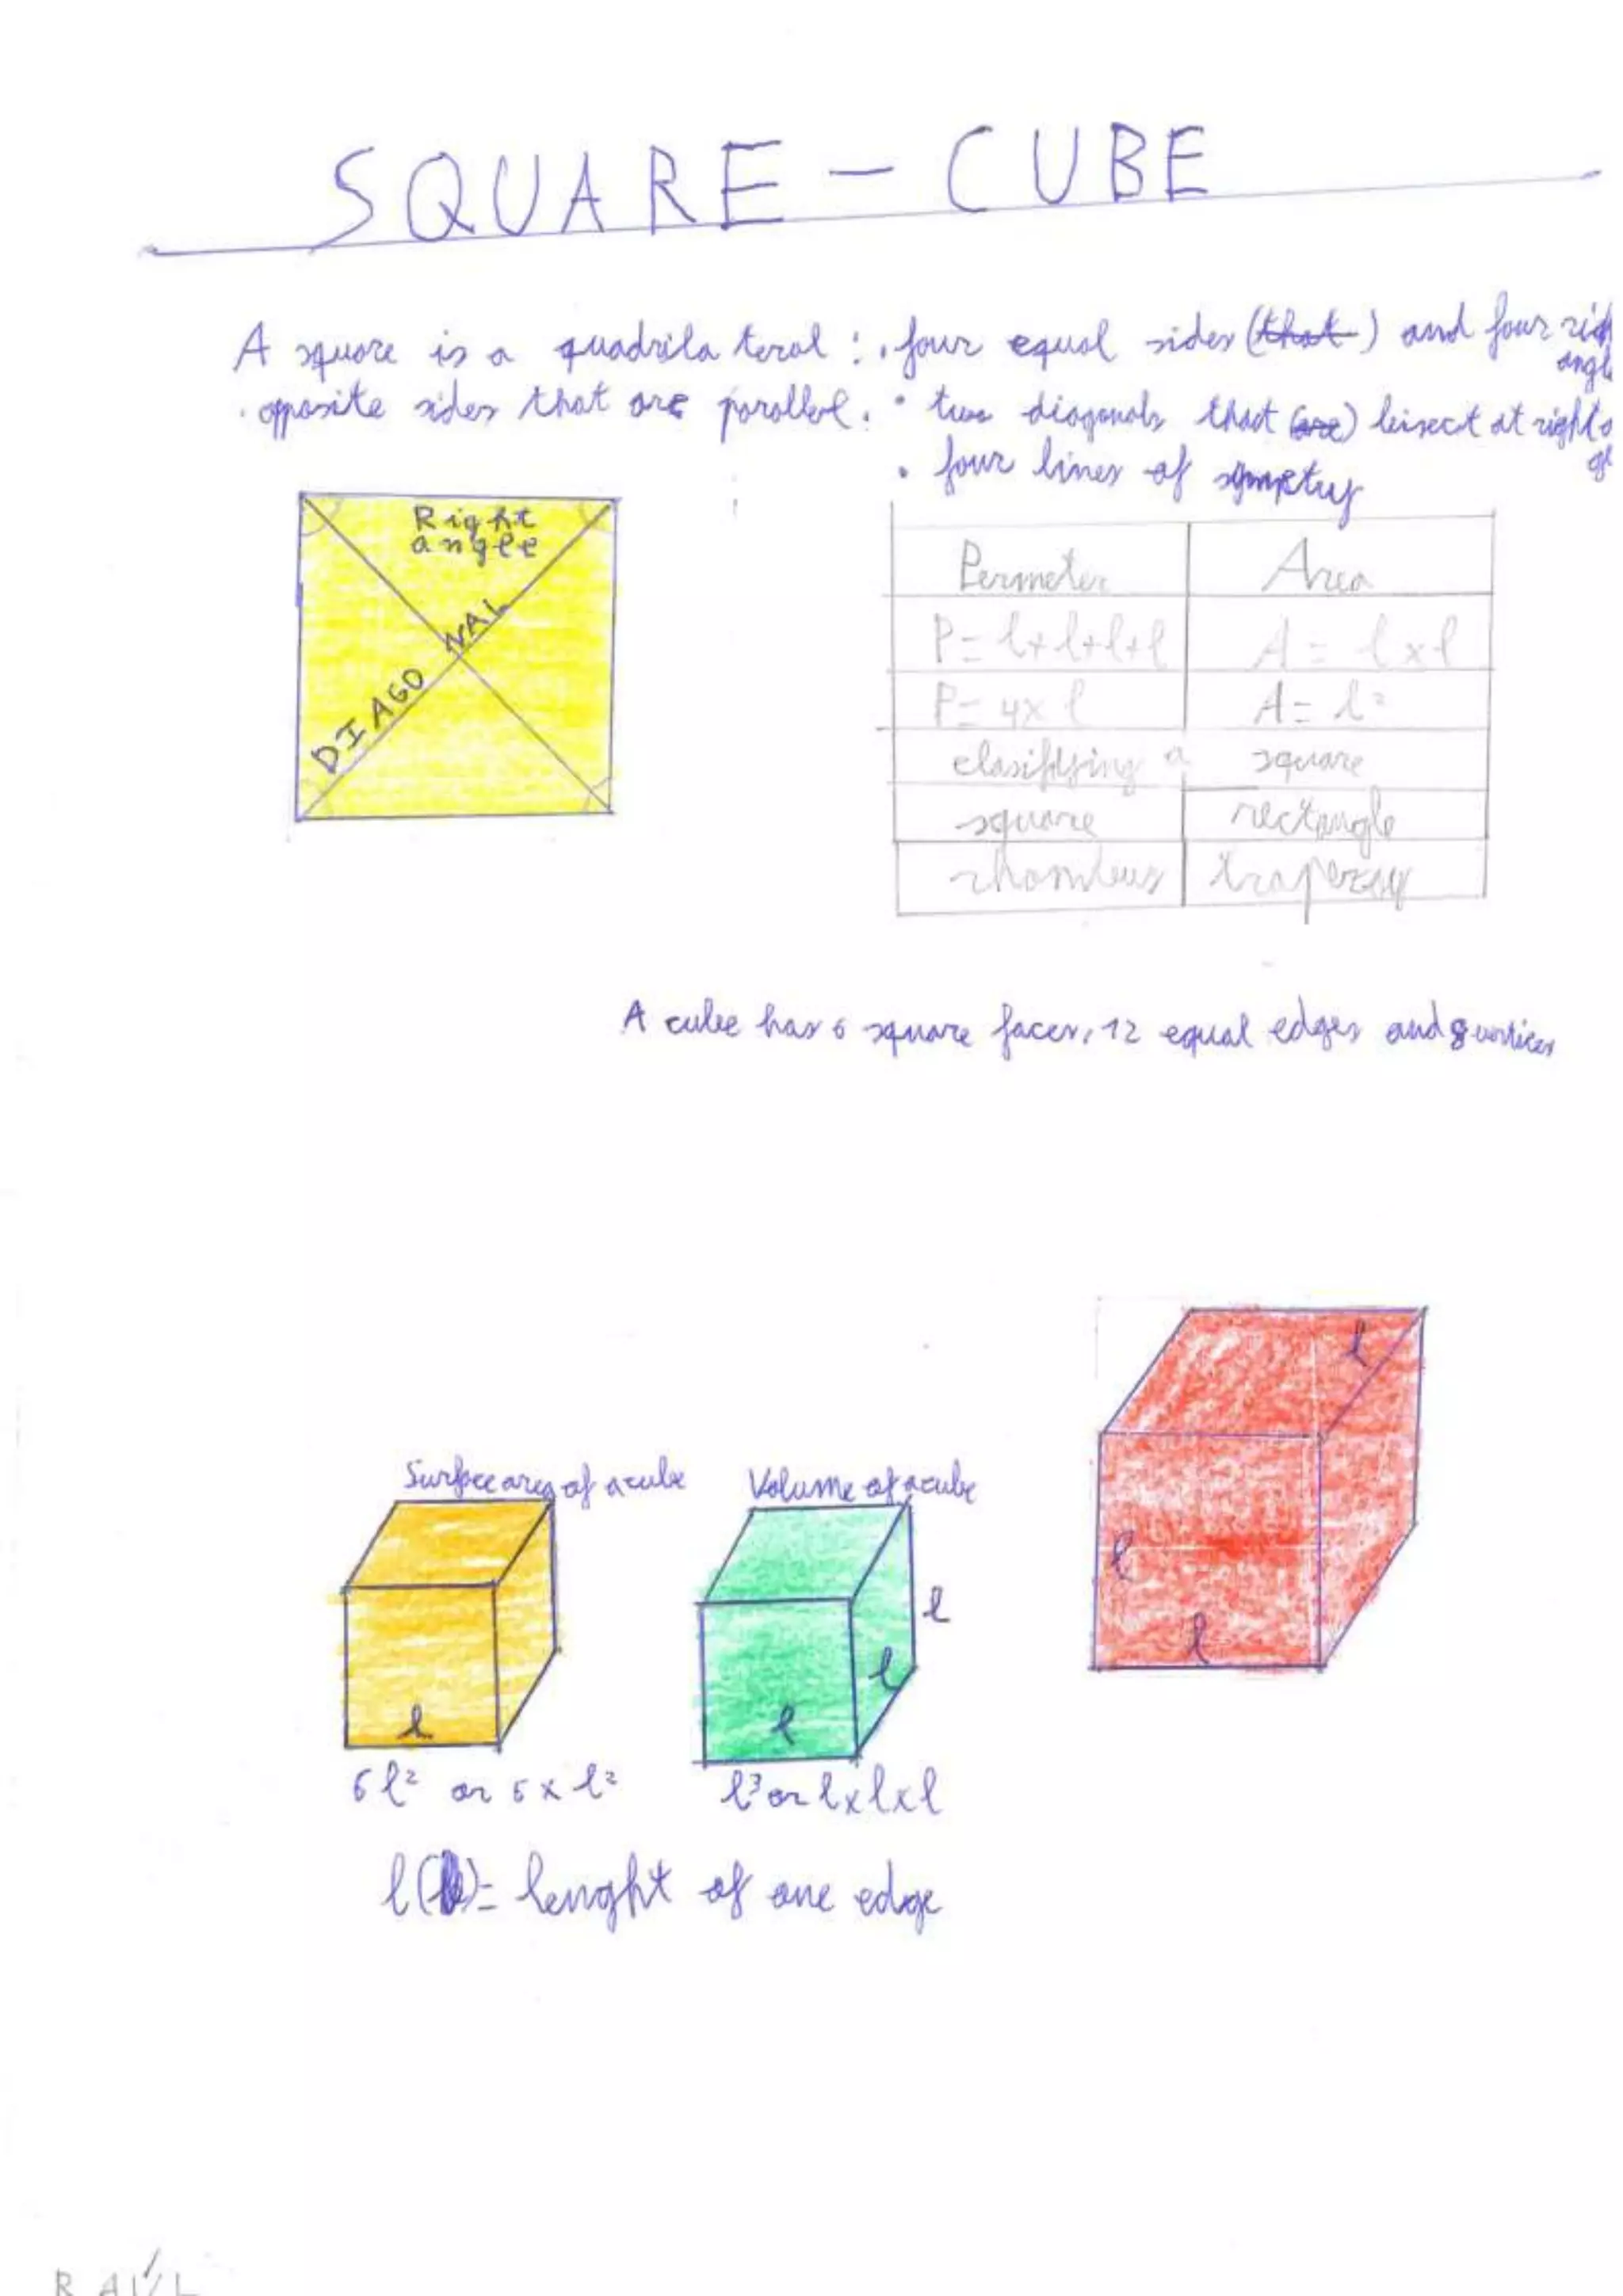 SQUARE - CUBE
A square is a quadrilateral : . four equal sides (that) and four righ
angl
. opposite sides that are parallel. • two diagonals that (are) bisect at right
• four lines of
Right
angle
DIAGONAL
Permeter Area
P = l+l+l+l A = l x l
P = 4x l A = l²
clasifying a square
square rectangle
rhombus
A cube has 6 square faces, 12 equal edges and 8 vertices
Surface area of a cube Volume of a cube
l
l
l
l
l
l
l
6l² or 6 x l² l³ or l x l x l
l ( ) = lenght of one edge
RAÚL